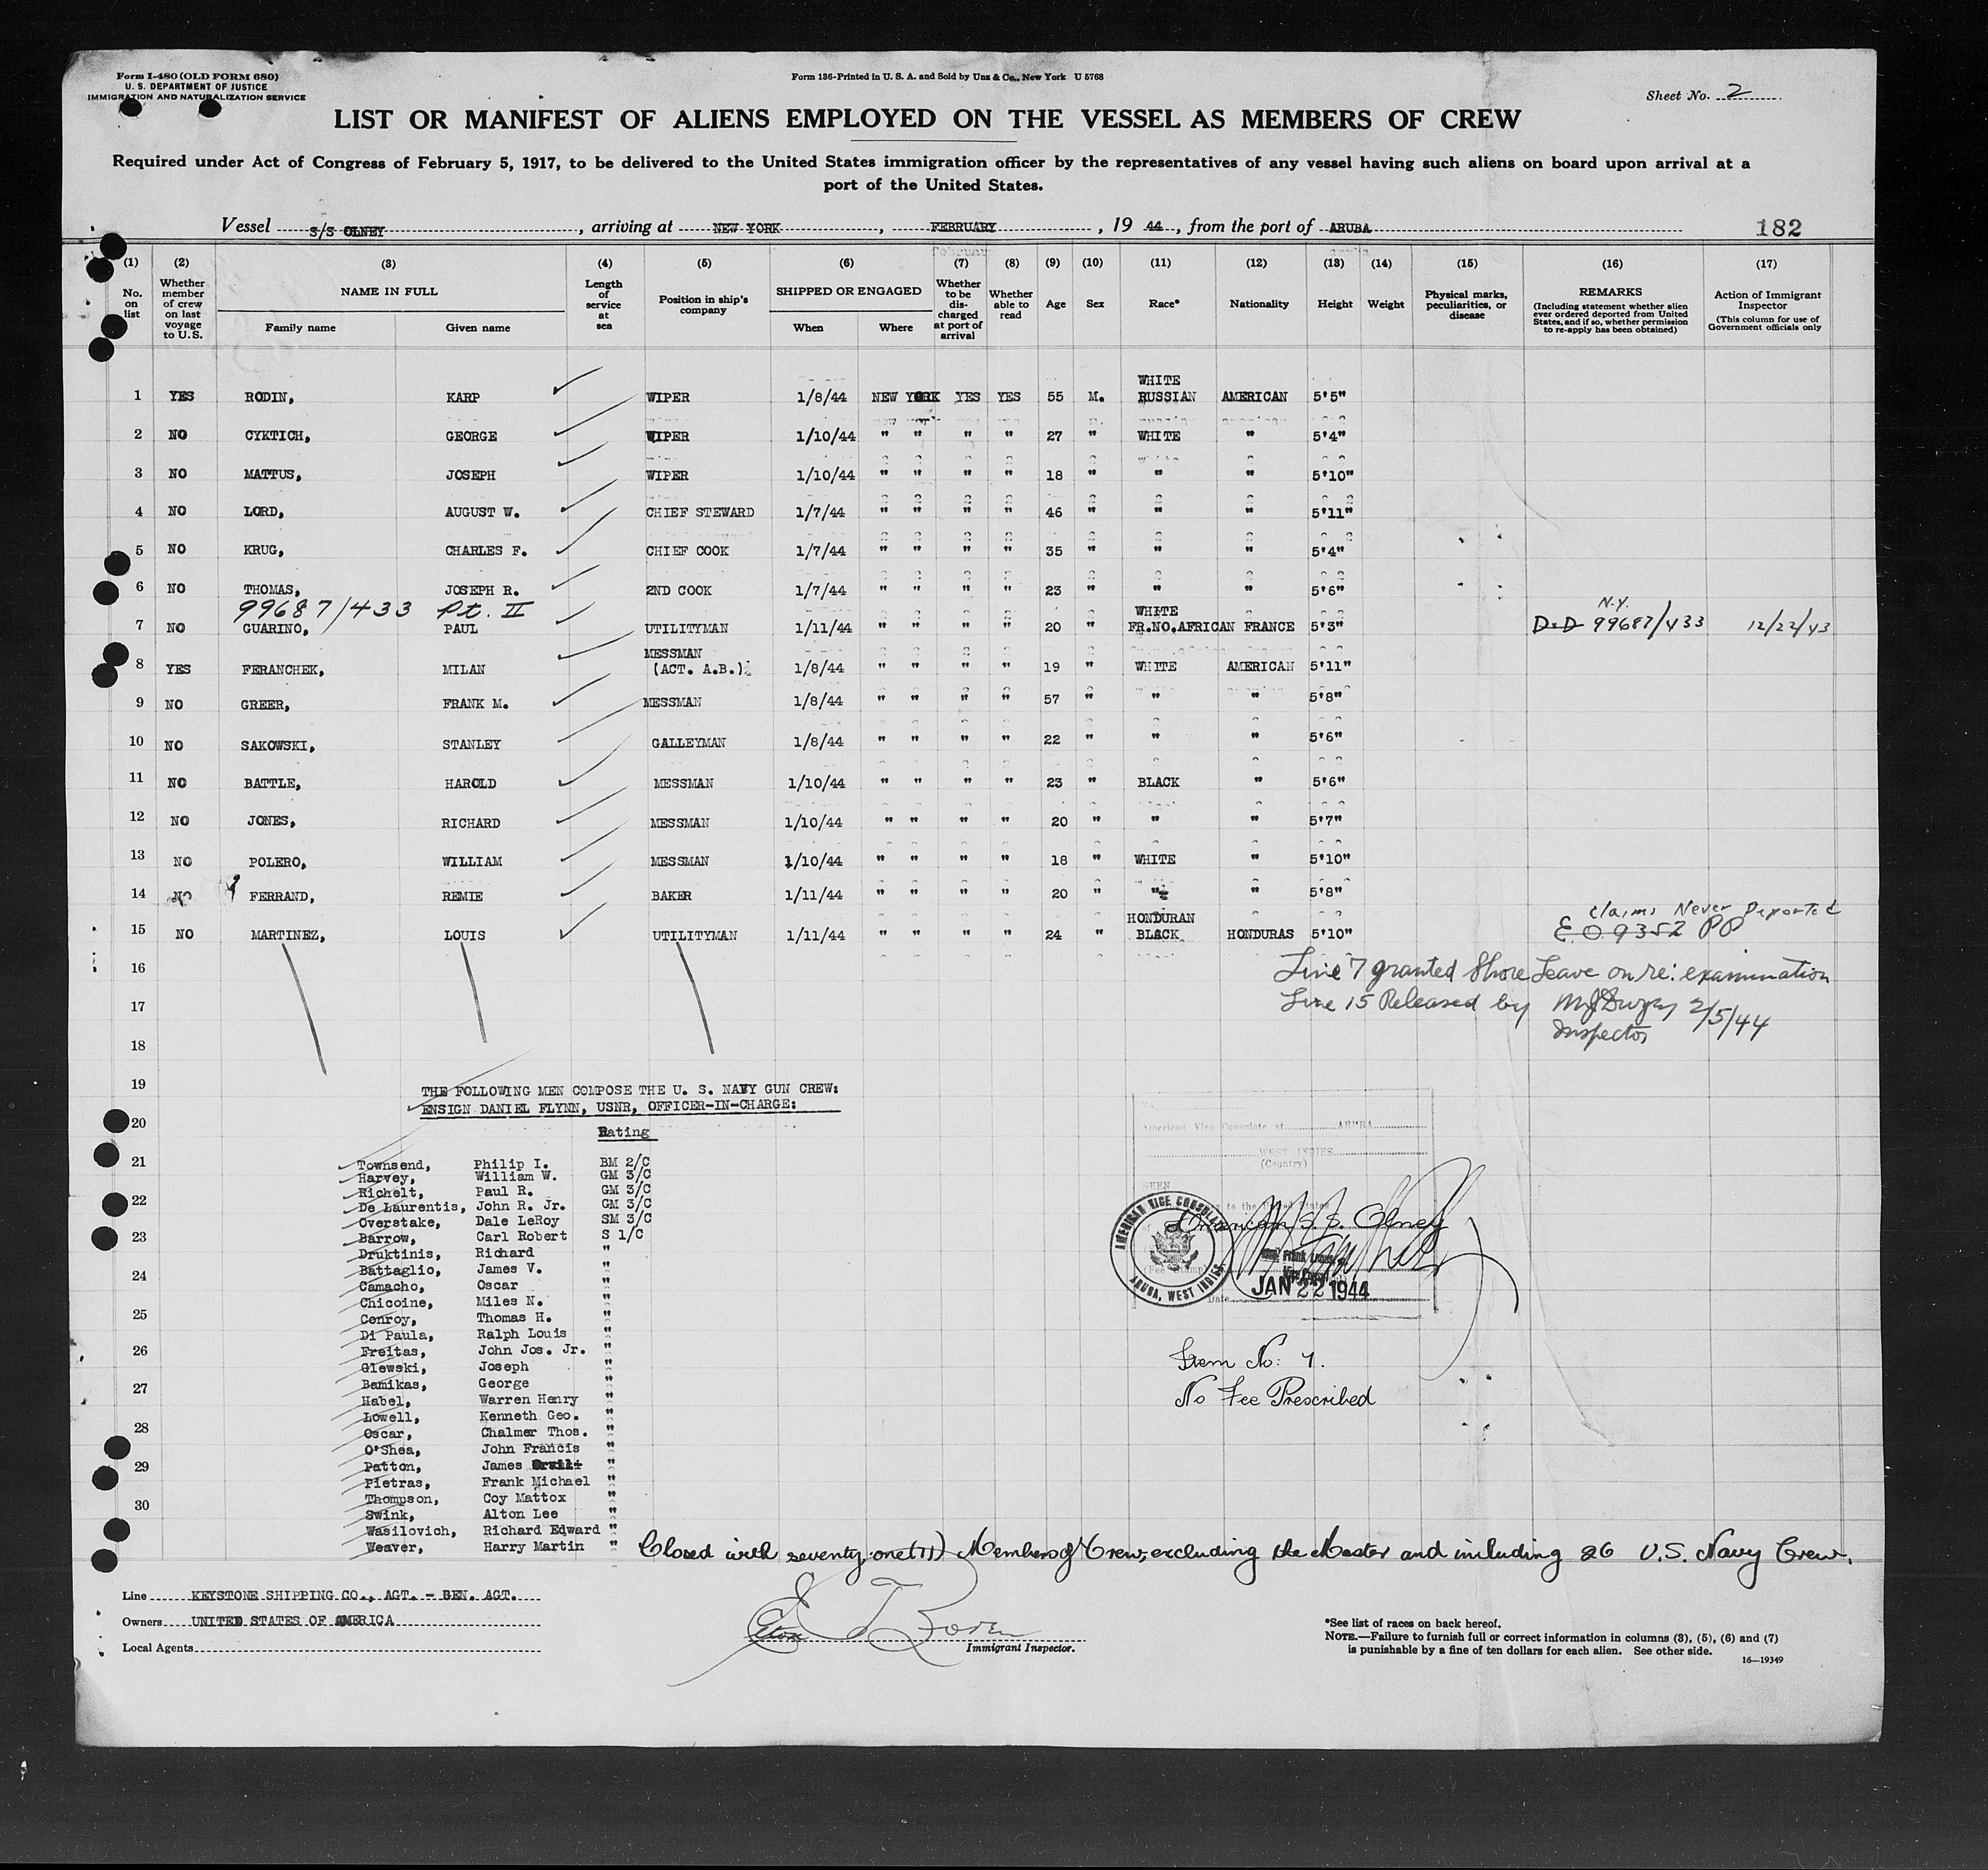 Form I-480 (OLD FORM 680)
U. S. DEPARTMENT OF JUSTICE
IMMIGRATION AND NATURALIZATION SERVICE
Form 136-Printed in U. S. A. and Sold by Unz & Co., New York U 5768
Sheet No. 2
LIST OR MANIFEST OF ALIENS EMPLOYED ON THE VESSEL AS MEMBERS OF CREW
Required under Act of Congress of February 5, 1917, to be delivered to the United States immigration officer by the representatives of any vessel having such aliens on board upon arrival at a
port of the United States.
Vessel S/S OLNEY, arriving at NEW YORK, FEBRUARY, 19 44, from the port of ARUBA
182
(1) No. on list
(2) Whether member of crew on last voyage to U.S.
(3) NAME IN FULL Family name Given name
(4) Length of service at sea
(5) Position in ship's company
(6) SHIPPED OR ENGAGED When Where
(7) Whether to be discharged at port of arrival
(8) Whether able to read
(9) Age
(10) Sex
(11) Race*
(12) Nationality
(13) Height
(14) Weight
(15) Physical marks, peculiarities, or disease
(16) REMARKS (Including statement whether alien ever ordered deported from United States, and if so, whether permission to re-apply has been obtained)
(17) Action of Immigrant Inspector (This column for use of Government officials only
1 YES RODIN, KARP WIPER 1/8/44 NEW YORK YES YES 55 M. WHITE RUSSIAN AMERICAN 5'5"
2 NO CYKTICH, GEORGE WIPER 1/10/44 " " " " 27 " WHITE " 5'4"
3 NO MATTUS, JOSEPH WIPER 1/10/44 " " " " 18 " " " 5'10"
4 NO LORD, AUGUST W. CHIEF STEWARD 1/7/44 " " " " 46 " " " 5'11"
5 NO KRUG, CHARLES F. CHIEF COOK 1/7/44 " " " " 35 " " " 5'4"
6 NO THOMAS, JOSEPH R. 2ND COOK 1/7/44 " " " " 23 " " " 5'6"
99687/433 Pt. II
7 NO GUARINO, PAUL UTILITYMAN 1/11/44 " " " " 20 " WHITE FR.NO.AFRICAN FRANCE 5'3" N.Y. D.D 99687/433 12/22/43
8 YES FERANCHEK, MILAN MESSMAN (ACT. A.B.) 1/8/44 " " " " 19 " WHITE AMERICAN 5'11"
9 NO GREER, FRANK M. MESSMAN 1/8/44 " " " " 57 " " " 5'8"
10 NO SAKOWSKI, STANLEY GALLEYMAN 1/8/44 " " " " 22 " " " 5'6"
11 NO BATTLE, HAROLD MESSMAN 1/10/44 " " " " 23 " BLACK " 5'6"
12 NO JONES, RICHARD MESSMAN 1/10/44 " " " " 20 " " " 5'7"
13 NO POLERO, WILLIAM MESSMAN 1/10/44 " " " " 18 " WHITE " 5'10"
14 NO FERRAND, REMIE BAKER 1/11/44 " " " " 20 " " " 5'8"
Claims Never Deported
15 NO MARTINEZ, LOUIS UTILITYMAN 1/11/44 " " " " 24 " HONDURAN BLACK HONDURAS 5'10" E.O 9352 PP
16
Line 7 granted Shore Leave on re: examination
17
Line 15 Released by 2/5/44
Inspector
18
19
THE FOLLOWING MEN COMPOSE THE U. S. NAVY GUN CREW:
ENSIGN DANIEL FLYNN, USNR, OFFICER-IN-CHARGE:
20
Rating
21
Townsend, Philip I. BM 2/C
Harvey, William W. GM 3/C
Richelt, Paul R. GM 3/C
22
De Laurentis, John R. Jr. GM 3/C
Overstake, Dale LeRoy SM 3/C
23
Barrow, Carl Robert S 1/C
Druktinis, Richard "
24
Battaglio, James V. "
Camacho, Oscar "
Chicoine, Miles N. "
25
Conroy, Thomas H. "
Di Paula, Ralph Louis "
26
Freitas, John Jos. Jr. "
Glewski, Joseph "
27
Bamikas, George "
Habel, Warren Henry "
Lowell, Kenneth Geo. "
28
Oscar, Chalmer Thos. "
O'Shea, John Francis "
29
Patton, James "
Pietras, Frank Michael "
30
Thompson, Coy Mattox "
Swink, Alton Lee "
Wasilovich, Richard Edward "
Weaver, Harry Martin "
American Vice Consulate at ARUBA
WEST INDIES
(Country)
SEEN
to the United States
American S.S. Olney
AMERICAN VICE CONSULATE
ARUBA, WEST INDIES
Vice Consul
Date JAN 22 1944
Item No: 7.
No Fee Prescribed
Closed with seventy one (71) Members of Crew, excluding the Master and including 26 U.S. Navy Crew.
Line KEYSTONE SHIPPING CO., AGT. - GEN. AGT.
Owners UNITED STATES OF AMERICA
Local Agents
Immigrant Inspector.
*See list of races on back hereof.
NOTE.—Failure to furnish full or correct information in columns (3), (5), (6) and (7)
is punishable by a fine of ten dollars for each alien. See other side.
16—19349